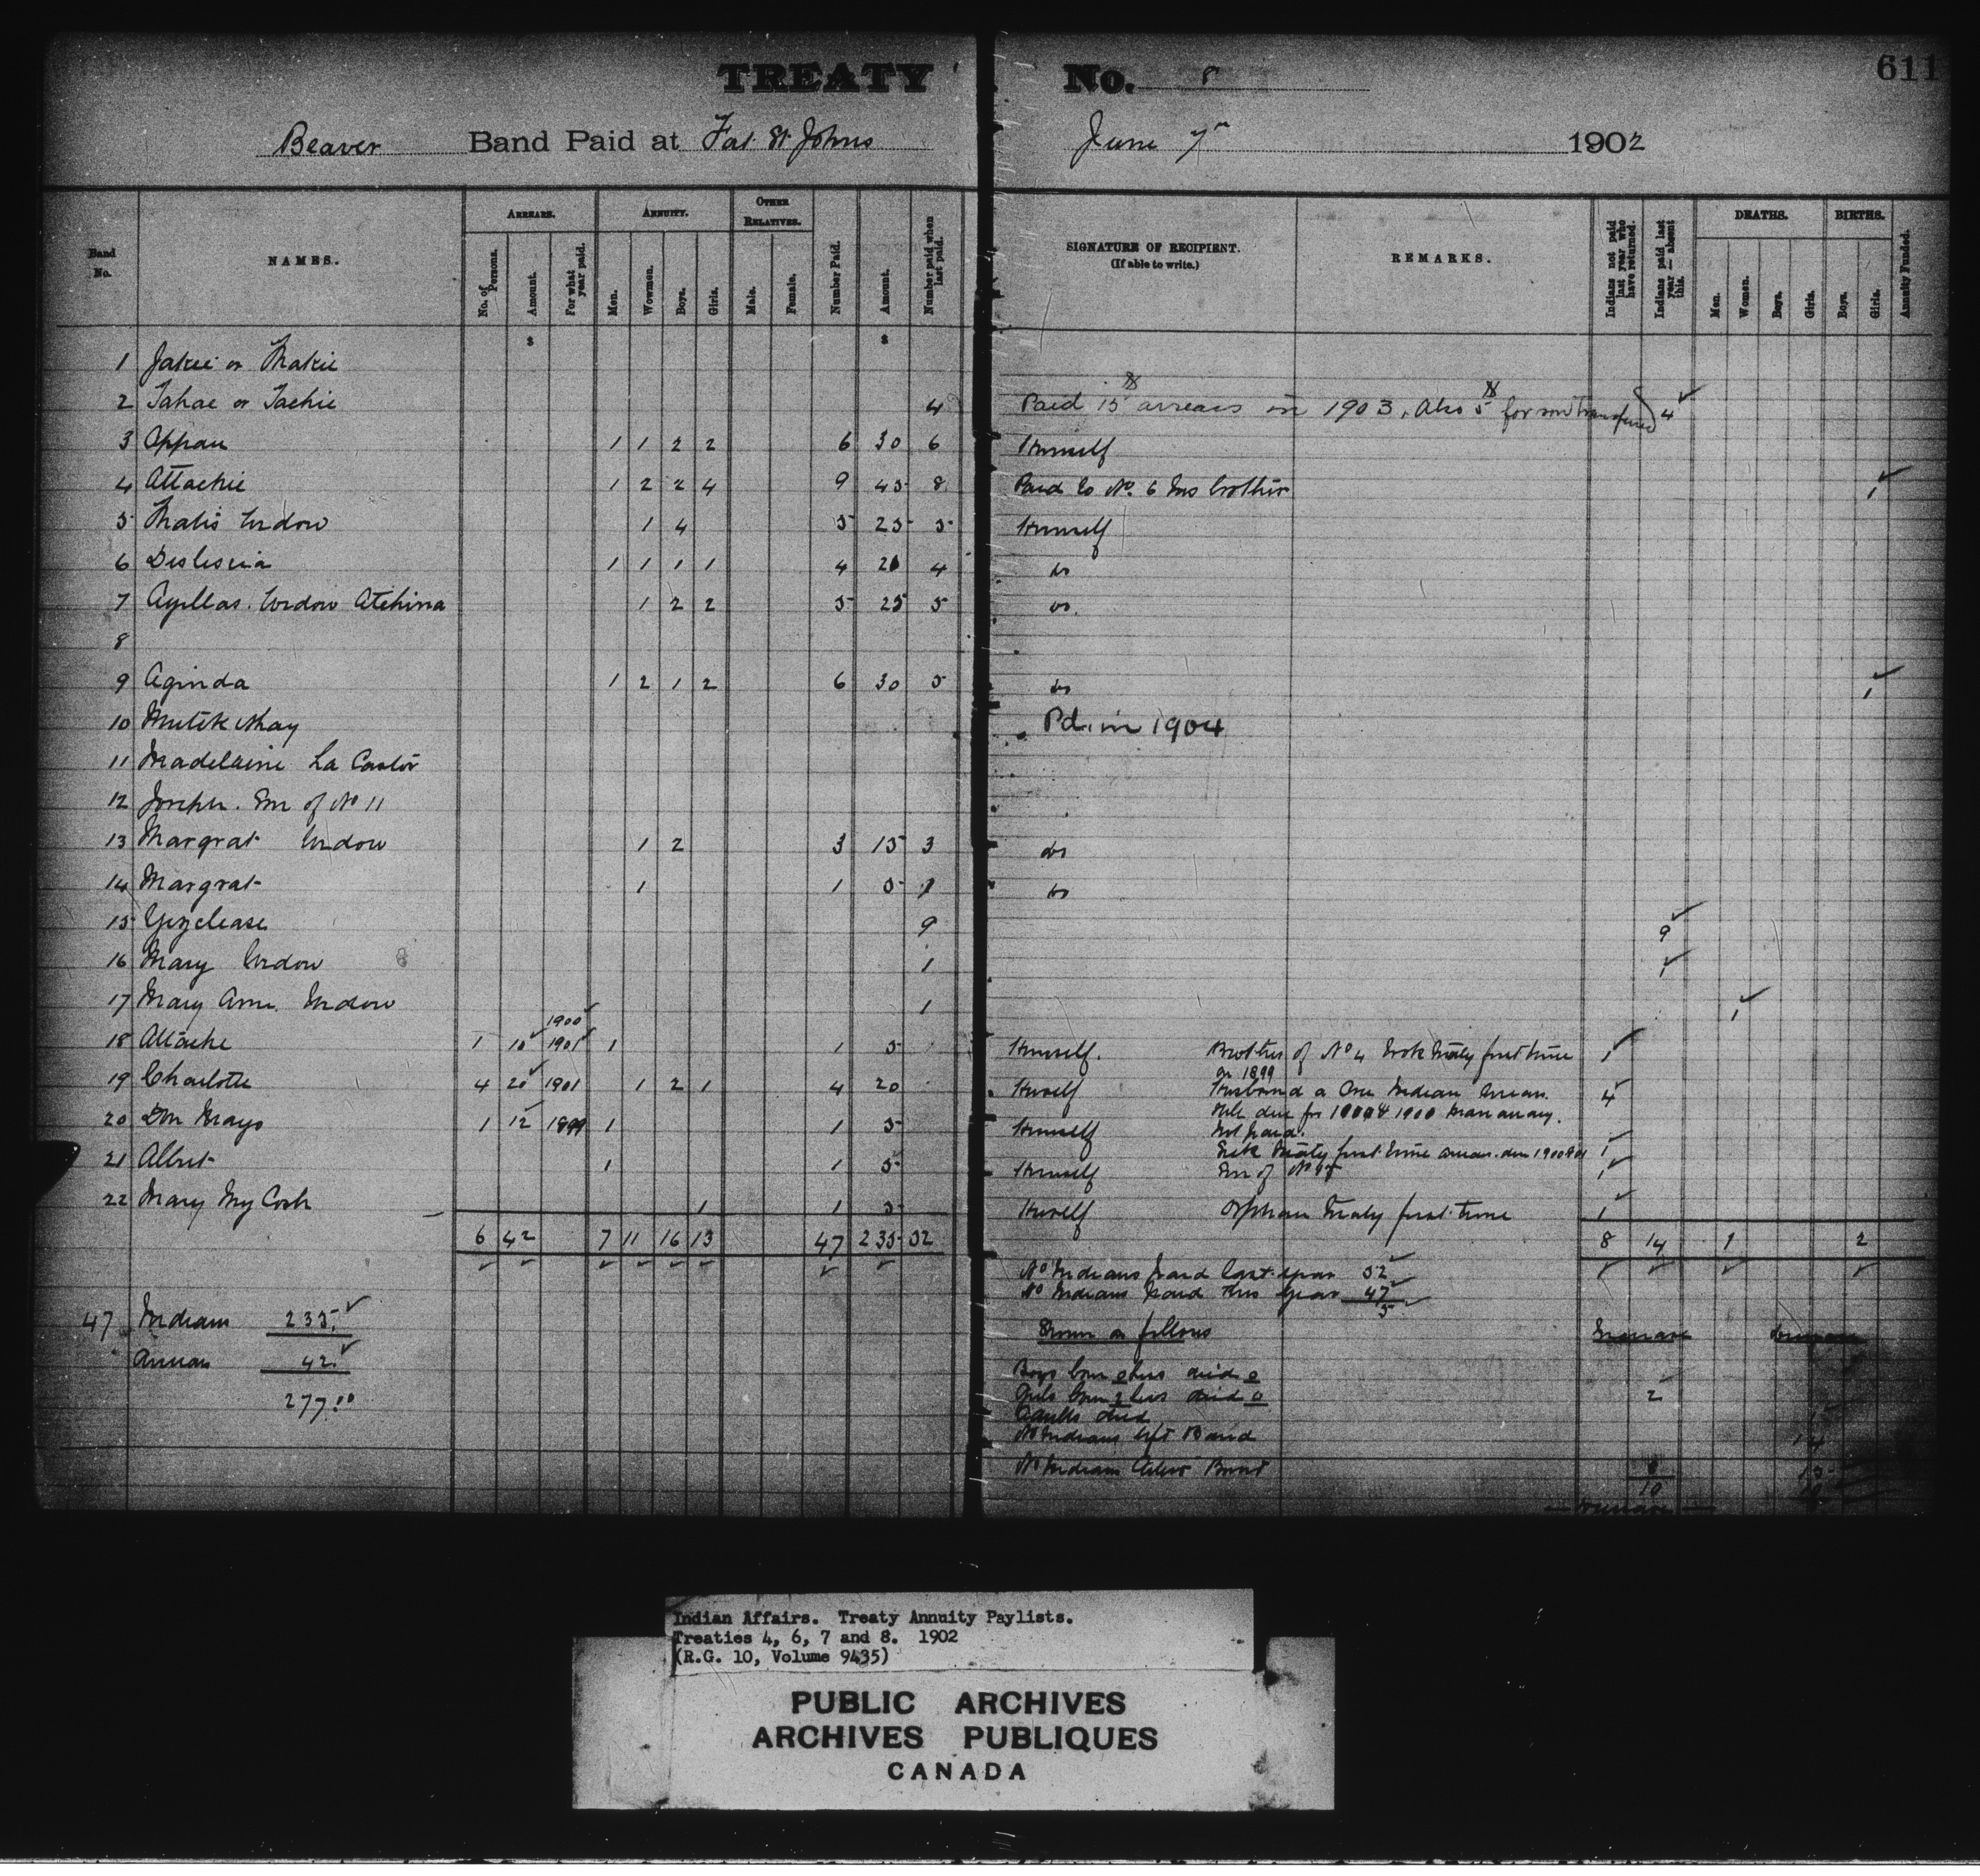 TREATY No. 8
611
Beaver Band Paid at Fort St Johns June 7th 1902
Band No.
NAMES.
ARREARS.
No. of Persons.
Amount.
For what year paid.
ANNUITY.
Men.
Wowmen.
Boys.
Girls.
OTHER RELATIVES.
Male.
Female.
Number Paid.
Amount.
Number paid when last paid.
SIGNATURE OF RECIPIENT.
(If able to write.)
REMARKS.
Indians not paid last year who have returned.
Indians paid last year — absent this.
DEATHS.
Men.
Women.
Boys.
Girls.
BIRTHS.
Boys.
Girls.
Annuity Funded.
$ $
1 Jakie or Makie
2 Tahae or Tachie 4 Paid 15 $ arrears in 1903. Also 5 $ for son transferred 4
3 Appan 1 1 2 2 6 30 6 Himself
4 Attachie 1 2 2 4 9 45 8 Paid to No. 6 his brother 1
5 Widow 1 4 5 25 5 Himself
6 1 1 1 1 4 20 4 do
7 Widow Atchina 1 2 2 5 25 5 do.
8
9 Aginda 1 2 1 2 6 30 5 do 1
10 Pd. in 1904
11 Madelaine La Castor
12 Joseph. Son of No 11
13 Margrat Widow 1 2 3 15 3 do
14 Margrat 1 1 5 1 do
15 9 9
16 Mary Widow 1 1
17 Mary Ann. Widow 1 1
1900
18 Attache 1 10 1901 1 1 5 Himself. Brother of No 4 Took Treaty first time 1
in 1899
19 Charlotte 4 20 1901 1 2 1 4 20 Herself Husband a Non Indian 4
20 Mays 1 12 1899 1 1 5 Himself Not paid. 1
Treaty first time
21 Albert 1 1 5 Himself Son of No 1
22 Mary My Cosh 1 1 5 Herself Orphan Treaty first time 1
6 42 7 11 16 13 47 235 52 8 14 1 2
No Indians paid last year 52
No Indians paid this year 47
5
47 Indians 235.
Shown as follows Increase Decrease
Arrears 42.
277.00
Boys born 0 less died 0
Girls born 2 less died 0 2
Adults died 1
No Indians left Band 14
No Indians Band 8 15
10 10
Decrease
Indian Affairs. Treaty Annuity Paylists.
Treaties 4, 6, 7 and 8. 1902
(R.G. 10, Volume 9435)
PUBLIC ARCHIVES
ARCHIVES PUBLIQUES
CANADA